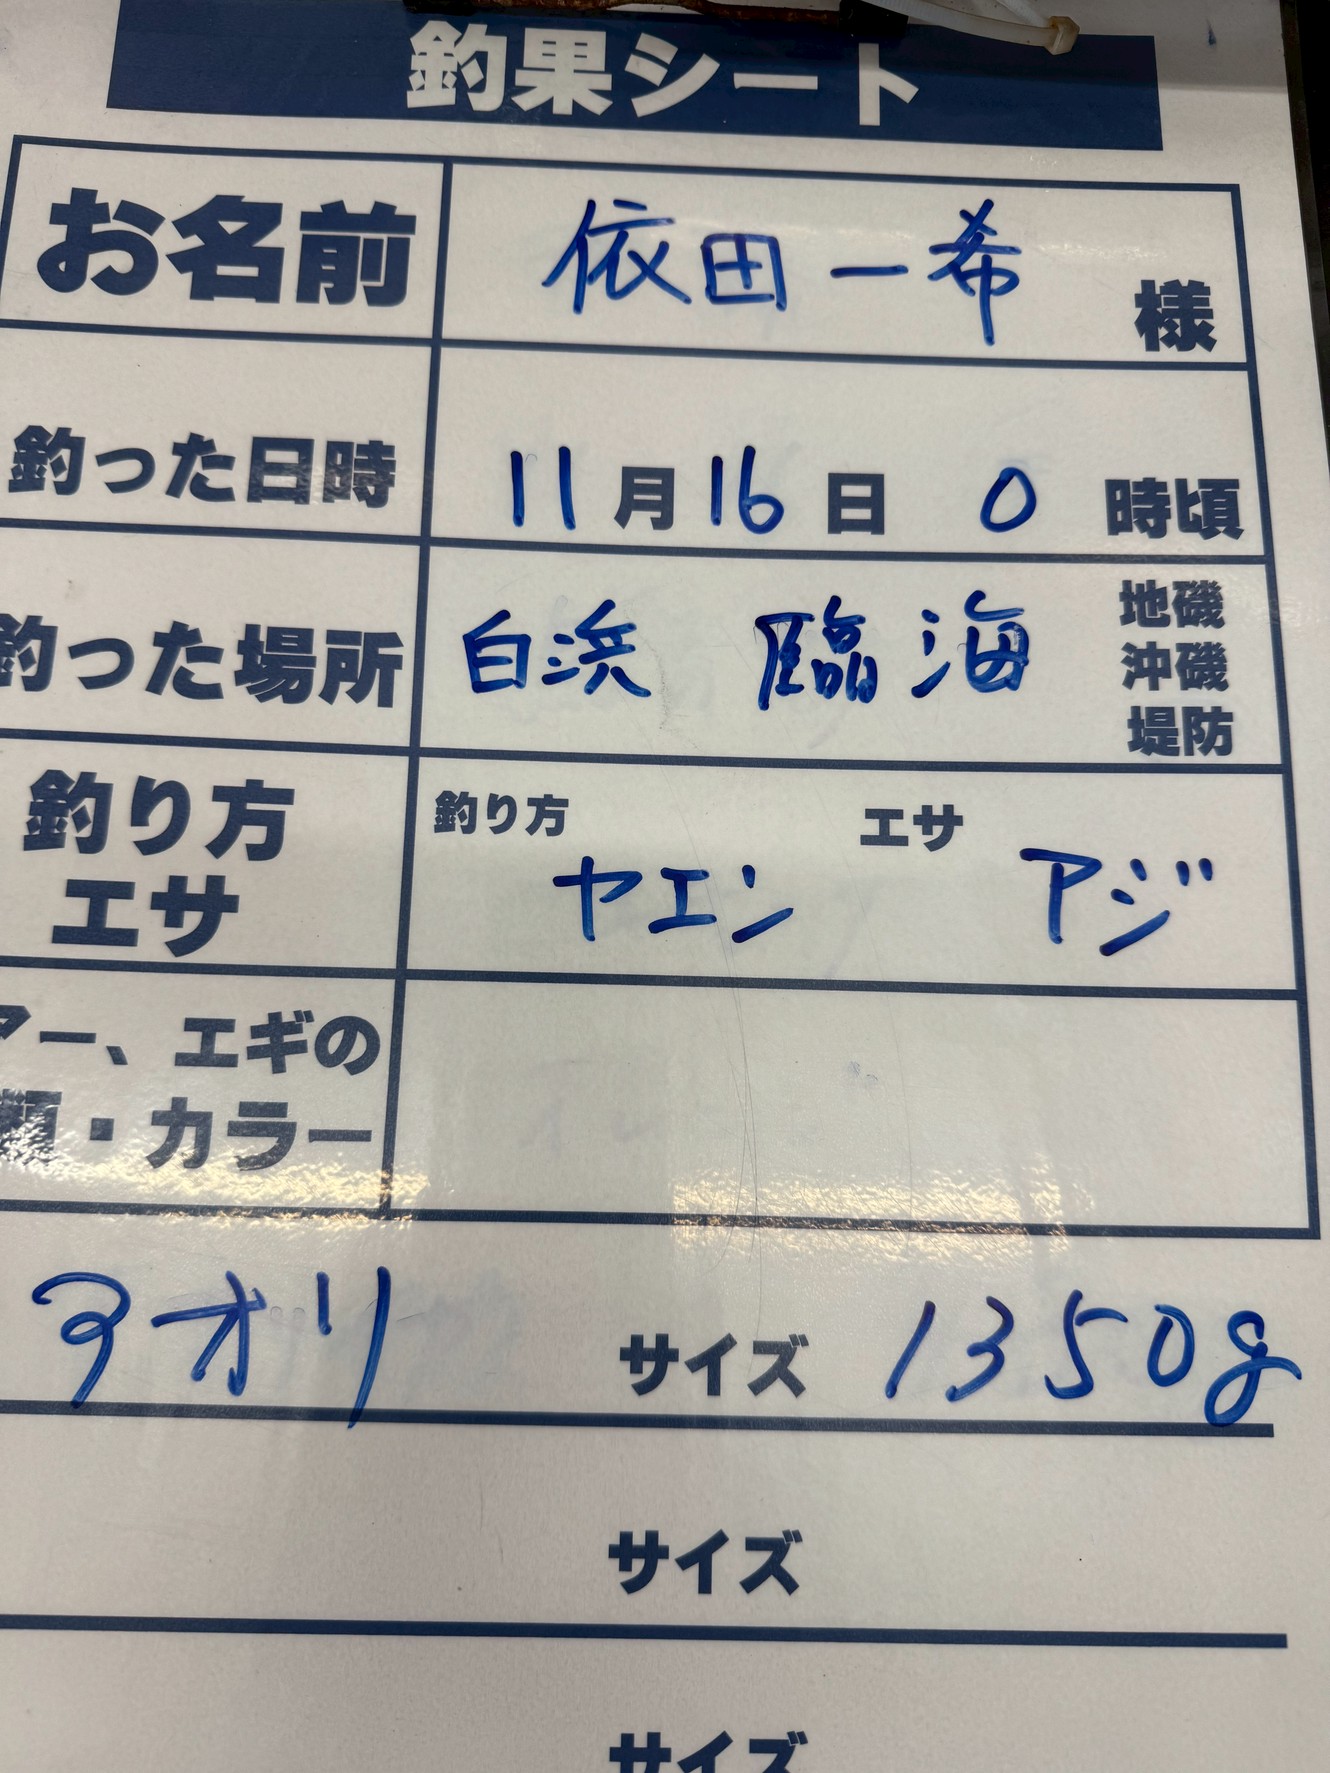 釣果シート
お名前 依田一希 様
釣った日時 11月16日 0時頃
釣った場所 白浜 臨海 地磯
沖磯
堤防
釣り方 釣り方 エサ
エサ ヤエン アジ
アー、エギの
類・カラー
アオリ サイズ 1350g
サイズ
サイズ